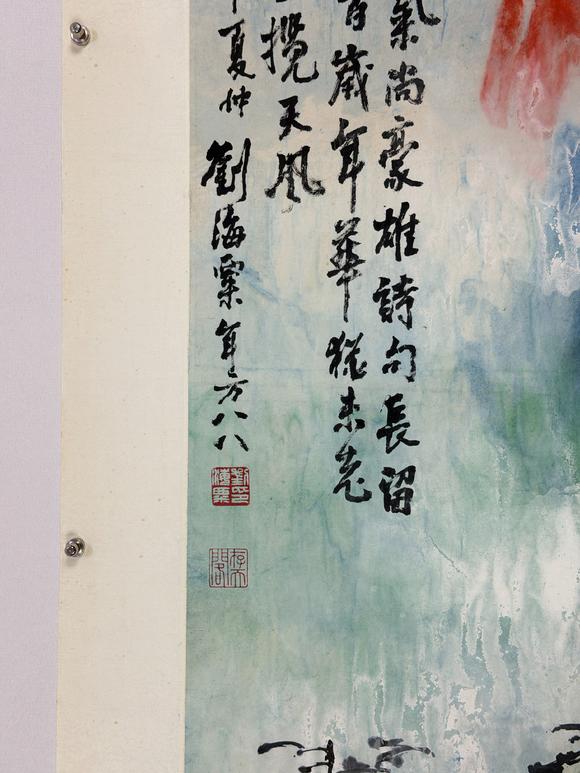 氣尚豪雄詩句長留
百歲年華猶未老
攬天風
夏仲劉海粟年方八八
劉印海粟
存天閣